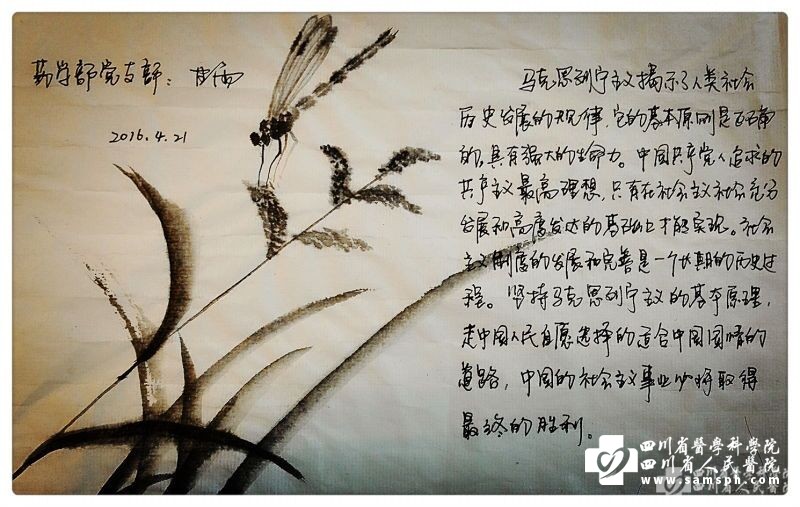 药学部党支部：
2016.4.21
马克思列宁主义揭示了人类社会
历史发展的规律，它的基本原则是正确
的，具有强大的生命力。中国共产党人追求的
共产主义最高理想，只有在社会主义社会充分
发展和高度发达的基础上才能实现。社会
主义制度的发展和完善是一个长期的历史过
程。坚持马克思列宁主义的基本原理，
走中国人民自愿选择的适合中国国情的
道路，中国的社会主义事业必将取得
最终的胜利。
四川省醫學科學院
四川省人民醫院
www.samsph.com